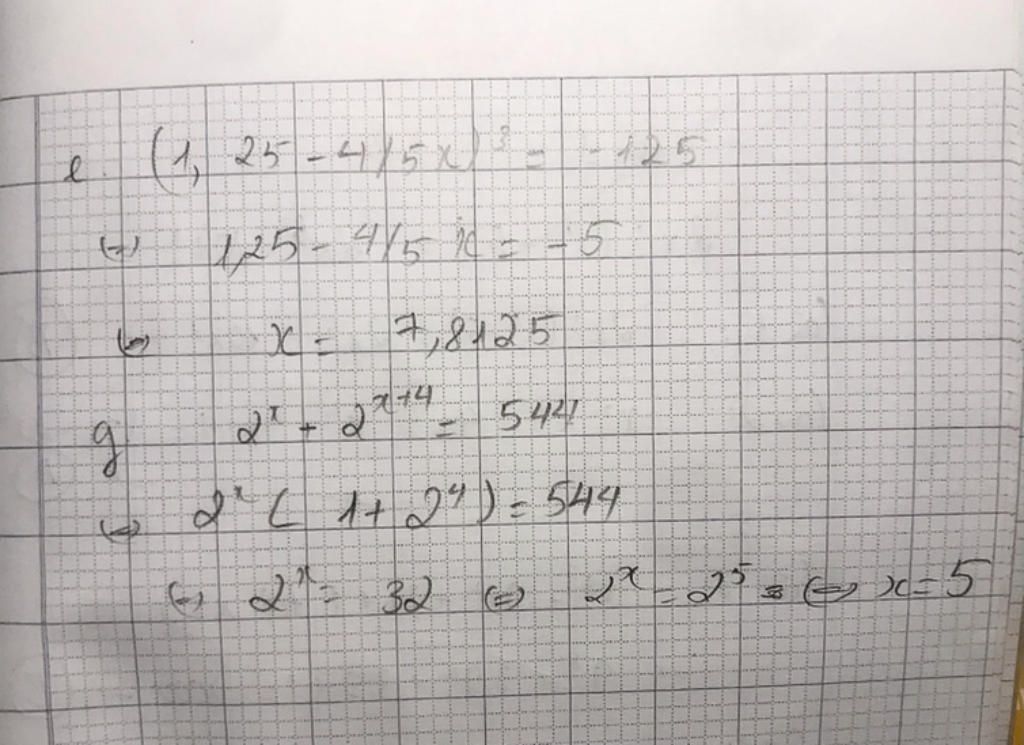 e. (1, 25 - 4/5x)³ = -125
⇔ 1,25 - 4/5 x = -5
⇔ x = 7,8125
g 2ˣ + 2ˣ⁺⁴ = 544
⇔ 2ˣ ( 1 + 2⁴ ) = 544
⇔ 2ˣ = 32 ⇔ 2ˣ = 2⁵ ⇔ x = 5